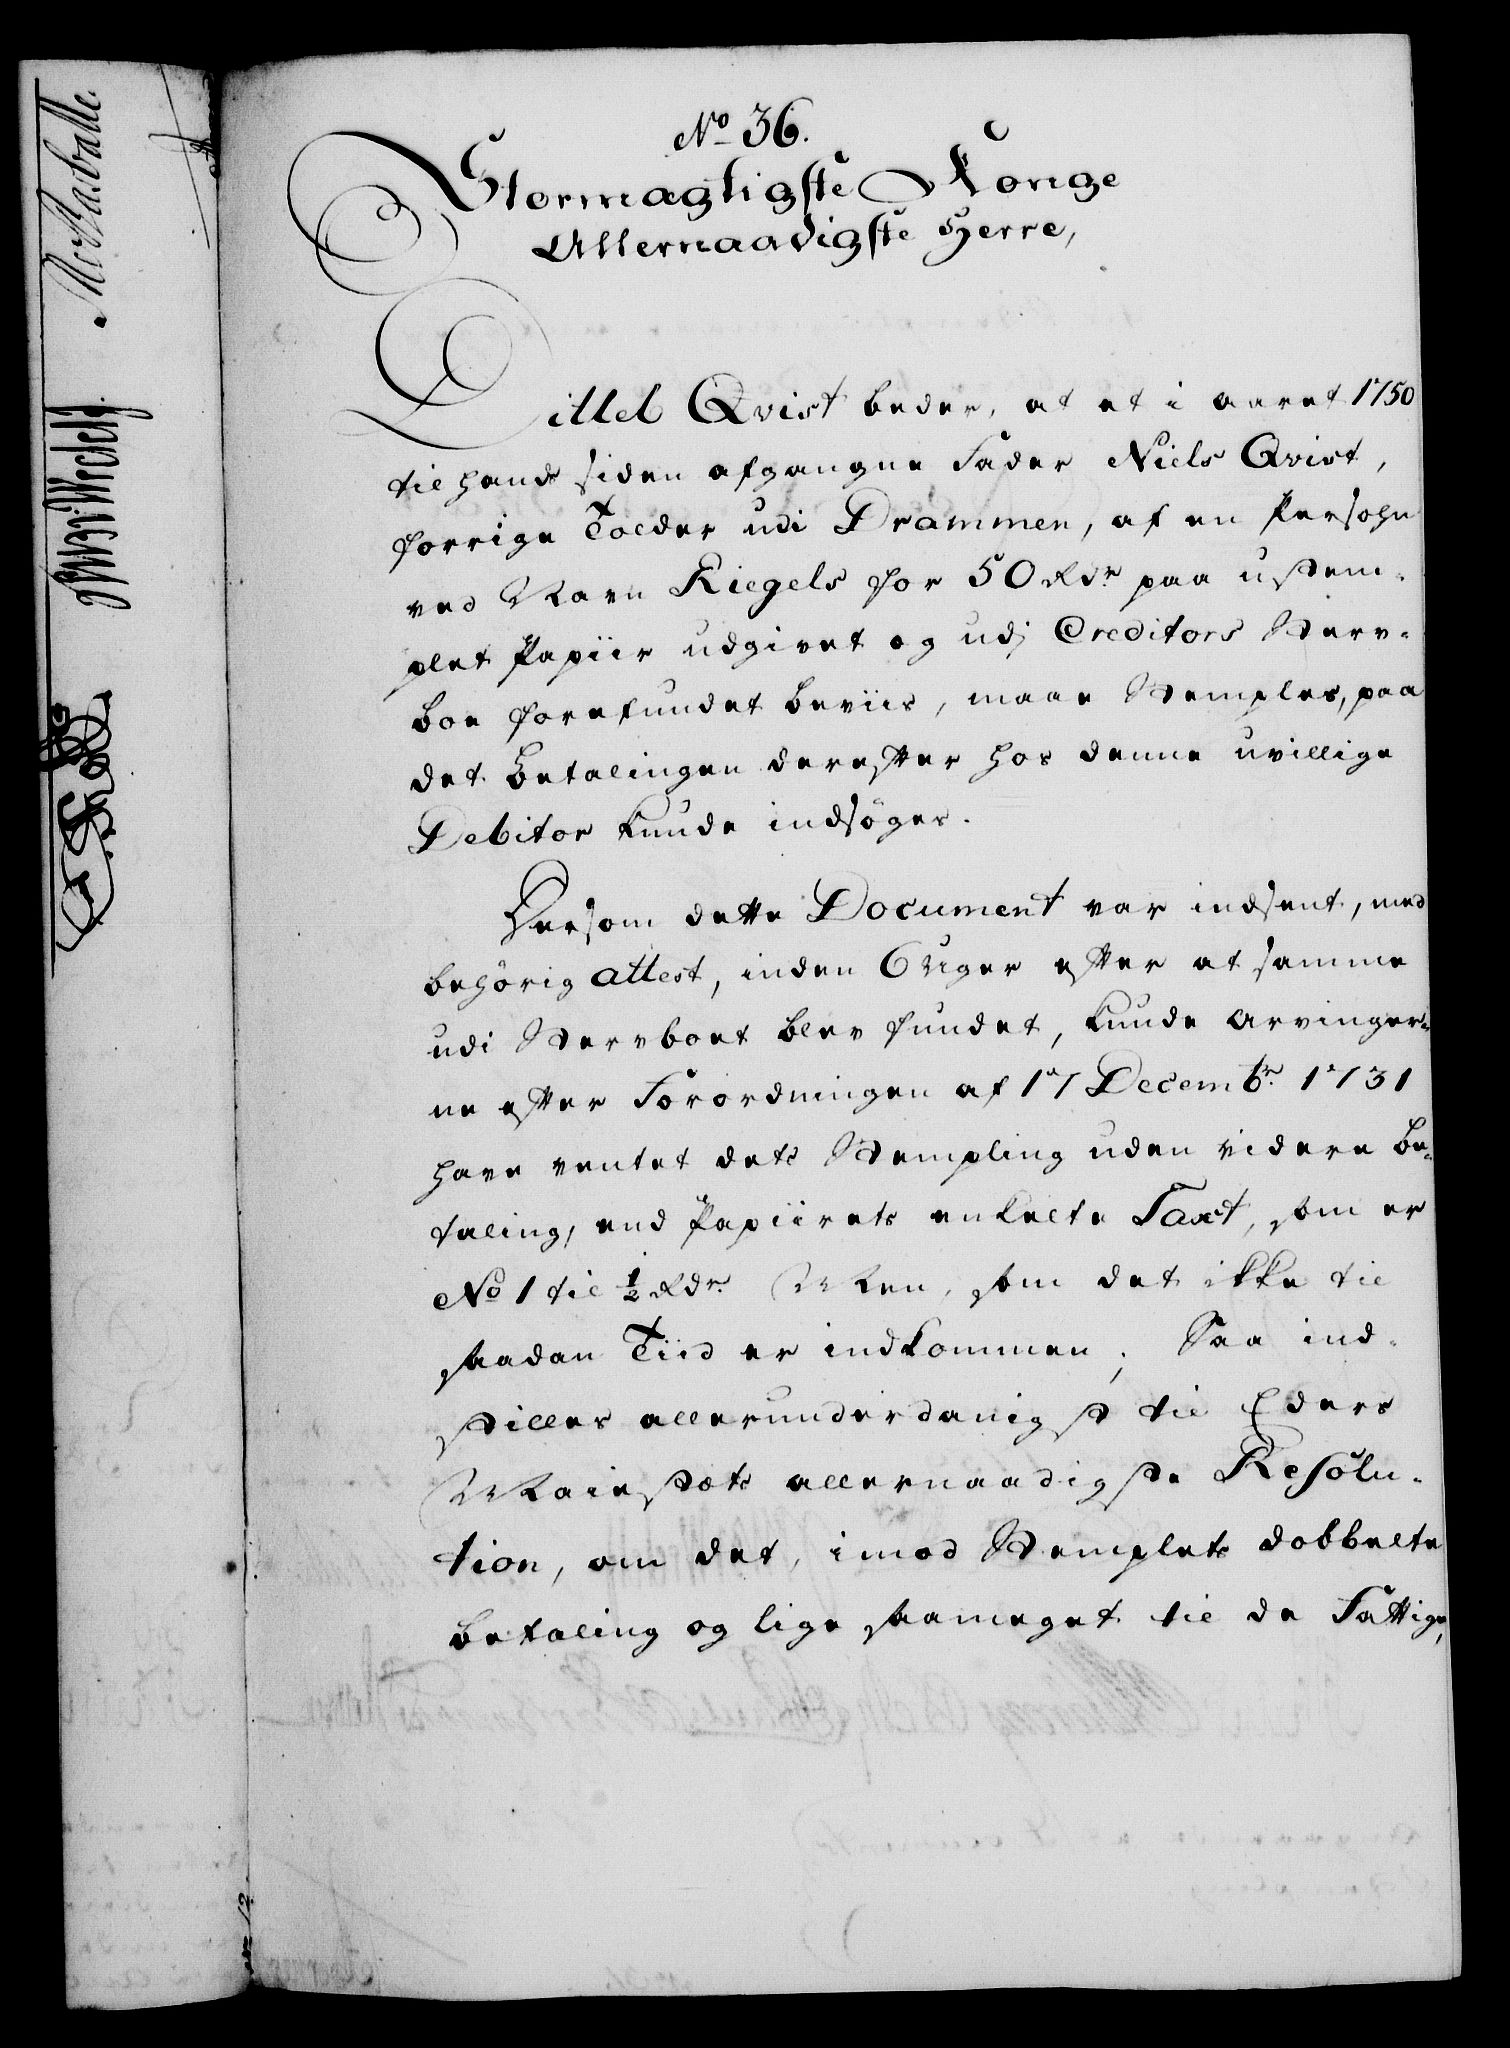 No 36.
Stormægtigste Konge
Allernaadigste Herre,
Dittel Qvist beder, at et i aaret 1750
til hands siden afgangne Fader Niels Qvist,
forrige Tolder udi Drammen, af en Persohn
ved Navn Riegels for 50 Rdr paa ustem-
plet Papiir udgivet og udj Creditors Sterv-
boe forefundet beviis, maae Stemples, paa
det betalingen derefter hos denne uvillige
Debitor kunde indsøges.
Dersom dette Document var indsent, med
behörig attest, inden 6 Uger efter at samme
udi Stervboet blev fundet, kunde arvinger-
ne efter Forordningen af 17 Decembr. 1731
have ventet dets Stempling uden videre be-
taling, end Papiirets enkelte Taxt, som er
No 1 til 1/2 Rdr. Men, som det ikke til
saadan Tiid er indkommen; Saa ind-
stilles allerunderdanigst til Eders
Maiestæts allernaadigste Resolu-
tion, om det, imod Stemplets dobbelte
betaling og lige saameget til de Fattige,